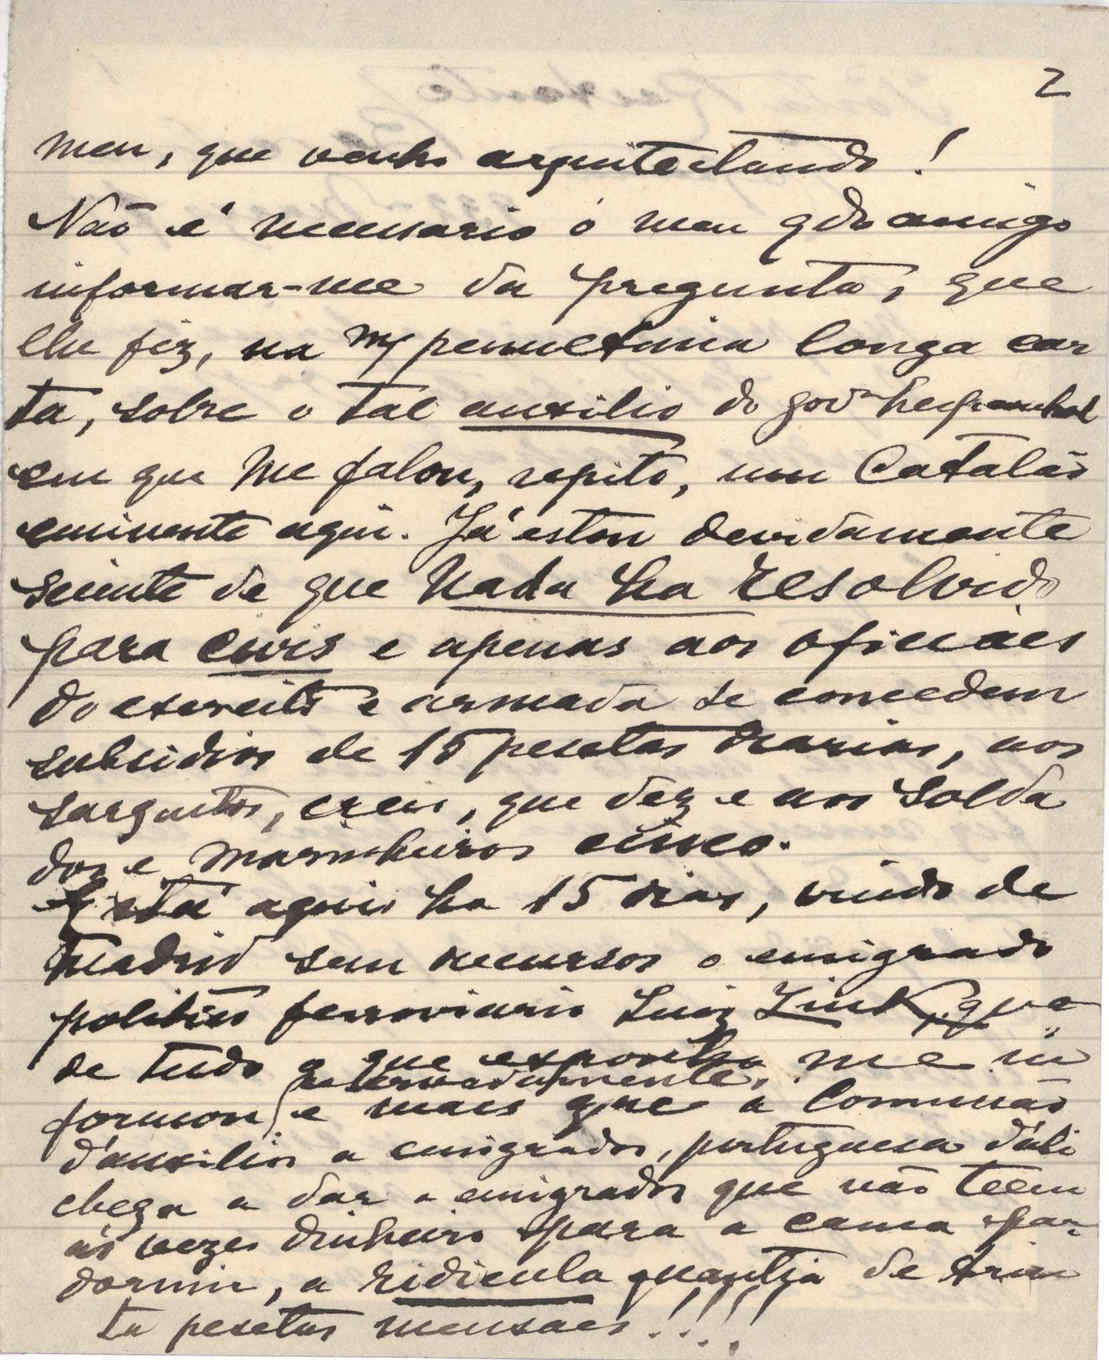 2
meu, que venho arquitectando!
Não é necessario ó meu qdo amigo
informar-me da pregunta, que
lhe fiz, na mª penultima longa car
ta, sobre o tal auxilio do govº hespanhol
em que me falou, repito, um Catalão
eminente aqui. Já estou devidamente
sciente de que nada ha resolvido
para civis e apenas aos oficiaes
do exercito e armada se concedem
subsidios de 15 pesetas diarias, aos
sargentos, creio, que dez e aos solda
dos e marinheiros cinco.
Está aqui ha 15 dias, vindo de
Madrid sem recursos o emigrado
politico ferroviario Luiz Zink, que
de tudo o que exponho, me in
reservadamente,
formou, e mais que a Comissão
d'auxilios a emigrados, portuguesa d'ali
chega a dar a emigrados que não teem
ás vezes dinheiro para a cama par
dormir, a ridicula quantia de trin
ta pesetas mensaes!!!!